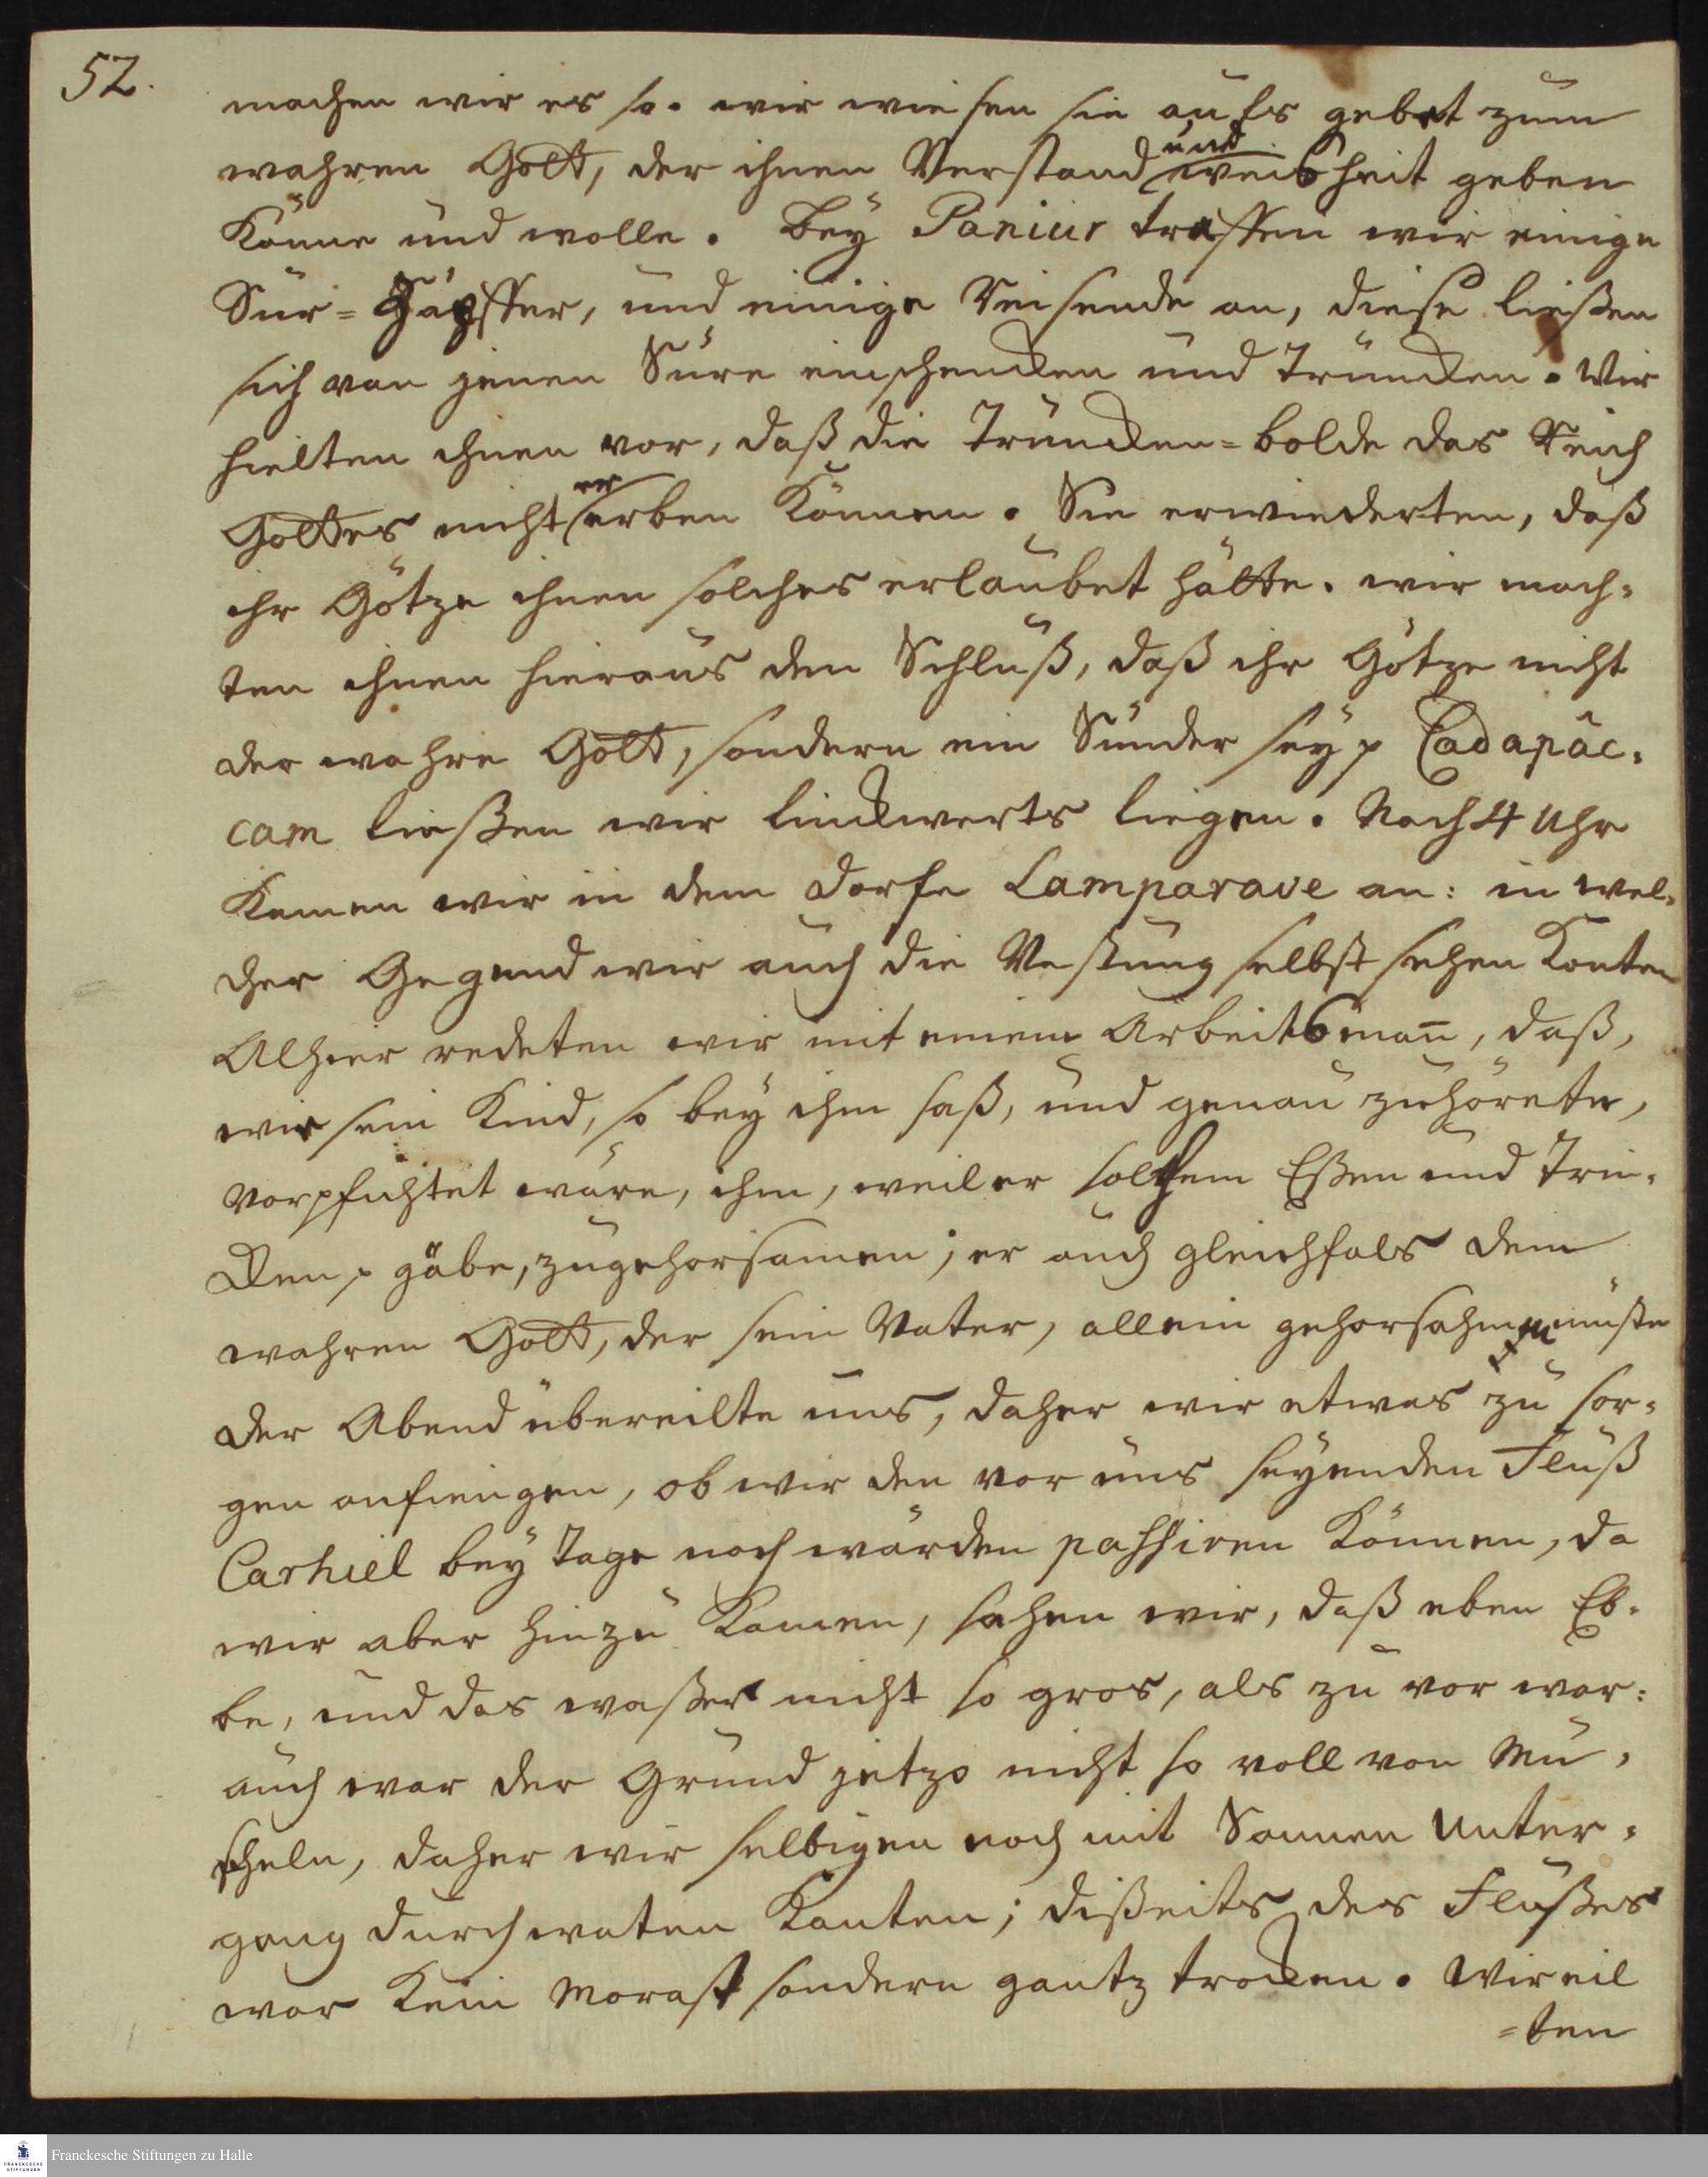 52.
machen wir es so. wir wiesen sie aufs gebet zum
wahren Gott, der ihnen Verstand und weisheit geben
könne und wolle. Bey Paniur traffen wir einige
Sur-Zäpffer, und einige Reisende an, diese ließen
sich von jenen Sure einschencken und truncken. Wir
hielten ihnen vor, daß die Truncken-bolde das Reich
Gottes nicht ererben können. Sie erwiederten, daß
ihr Götze ihnen solches erlaubet hätte. wir mach-
ten ihnen hieraus den Schluß, daß ihr Götze nicht
der wahre Gott, sondern ein Sünder sey p Cadapâc-
cam ließen wir linckwerts liegen. Nach 4 Uhr
kamen wir in dem dorfe Lamparave an: in wel-
cher Gegend wir auch die Vestung selbst sehen konten
Alhier redeten wir mit einem Arbeitsman̄, daß,
wie sein Kind, so bey ihm saß, und genau zuhörete,
verpflichtet wäre, ihm, weil er solchem Eßen und Trin-
cken p gäbe, zugehorsamen; er auch gleichfals dem
wahren Gott, der sein Vater, allein gehorsahmen müste
der Abend übereilte uns, daher wir etwas zu sor-
gen anfiengen, ob wir den vor uns seyenden Fluß
Carhiel bey Tage noch würden passiren können, da
wir aber hinzu kamen, sahen wir, daß eben Eb-
be, und das waßer nicht so gros, als zu vor war:
auch war der Grund jetzo nicht so voll von Mu-
scheln, daher wir selbigen noch mit Sonnen Unter-
gang durchwaten konten; dißeits des Flußes
war kein Morast sondern gantz trocken. Wir eil
=ten
Franckesche Stiftungen zu Halle
FRANCKESCHE STIFTUNGEN